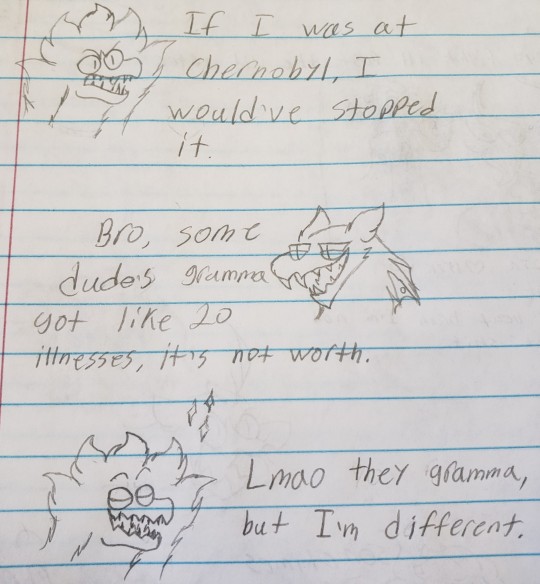 If I was at
Chernobyl, I
would've stopped
it.
Bro, some
dude's gramma
got like 20
illnesses, it's not worth.
Lmao they gramma,
but I'm different.